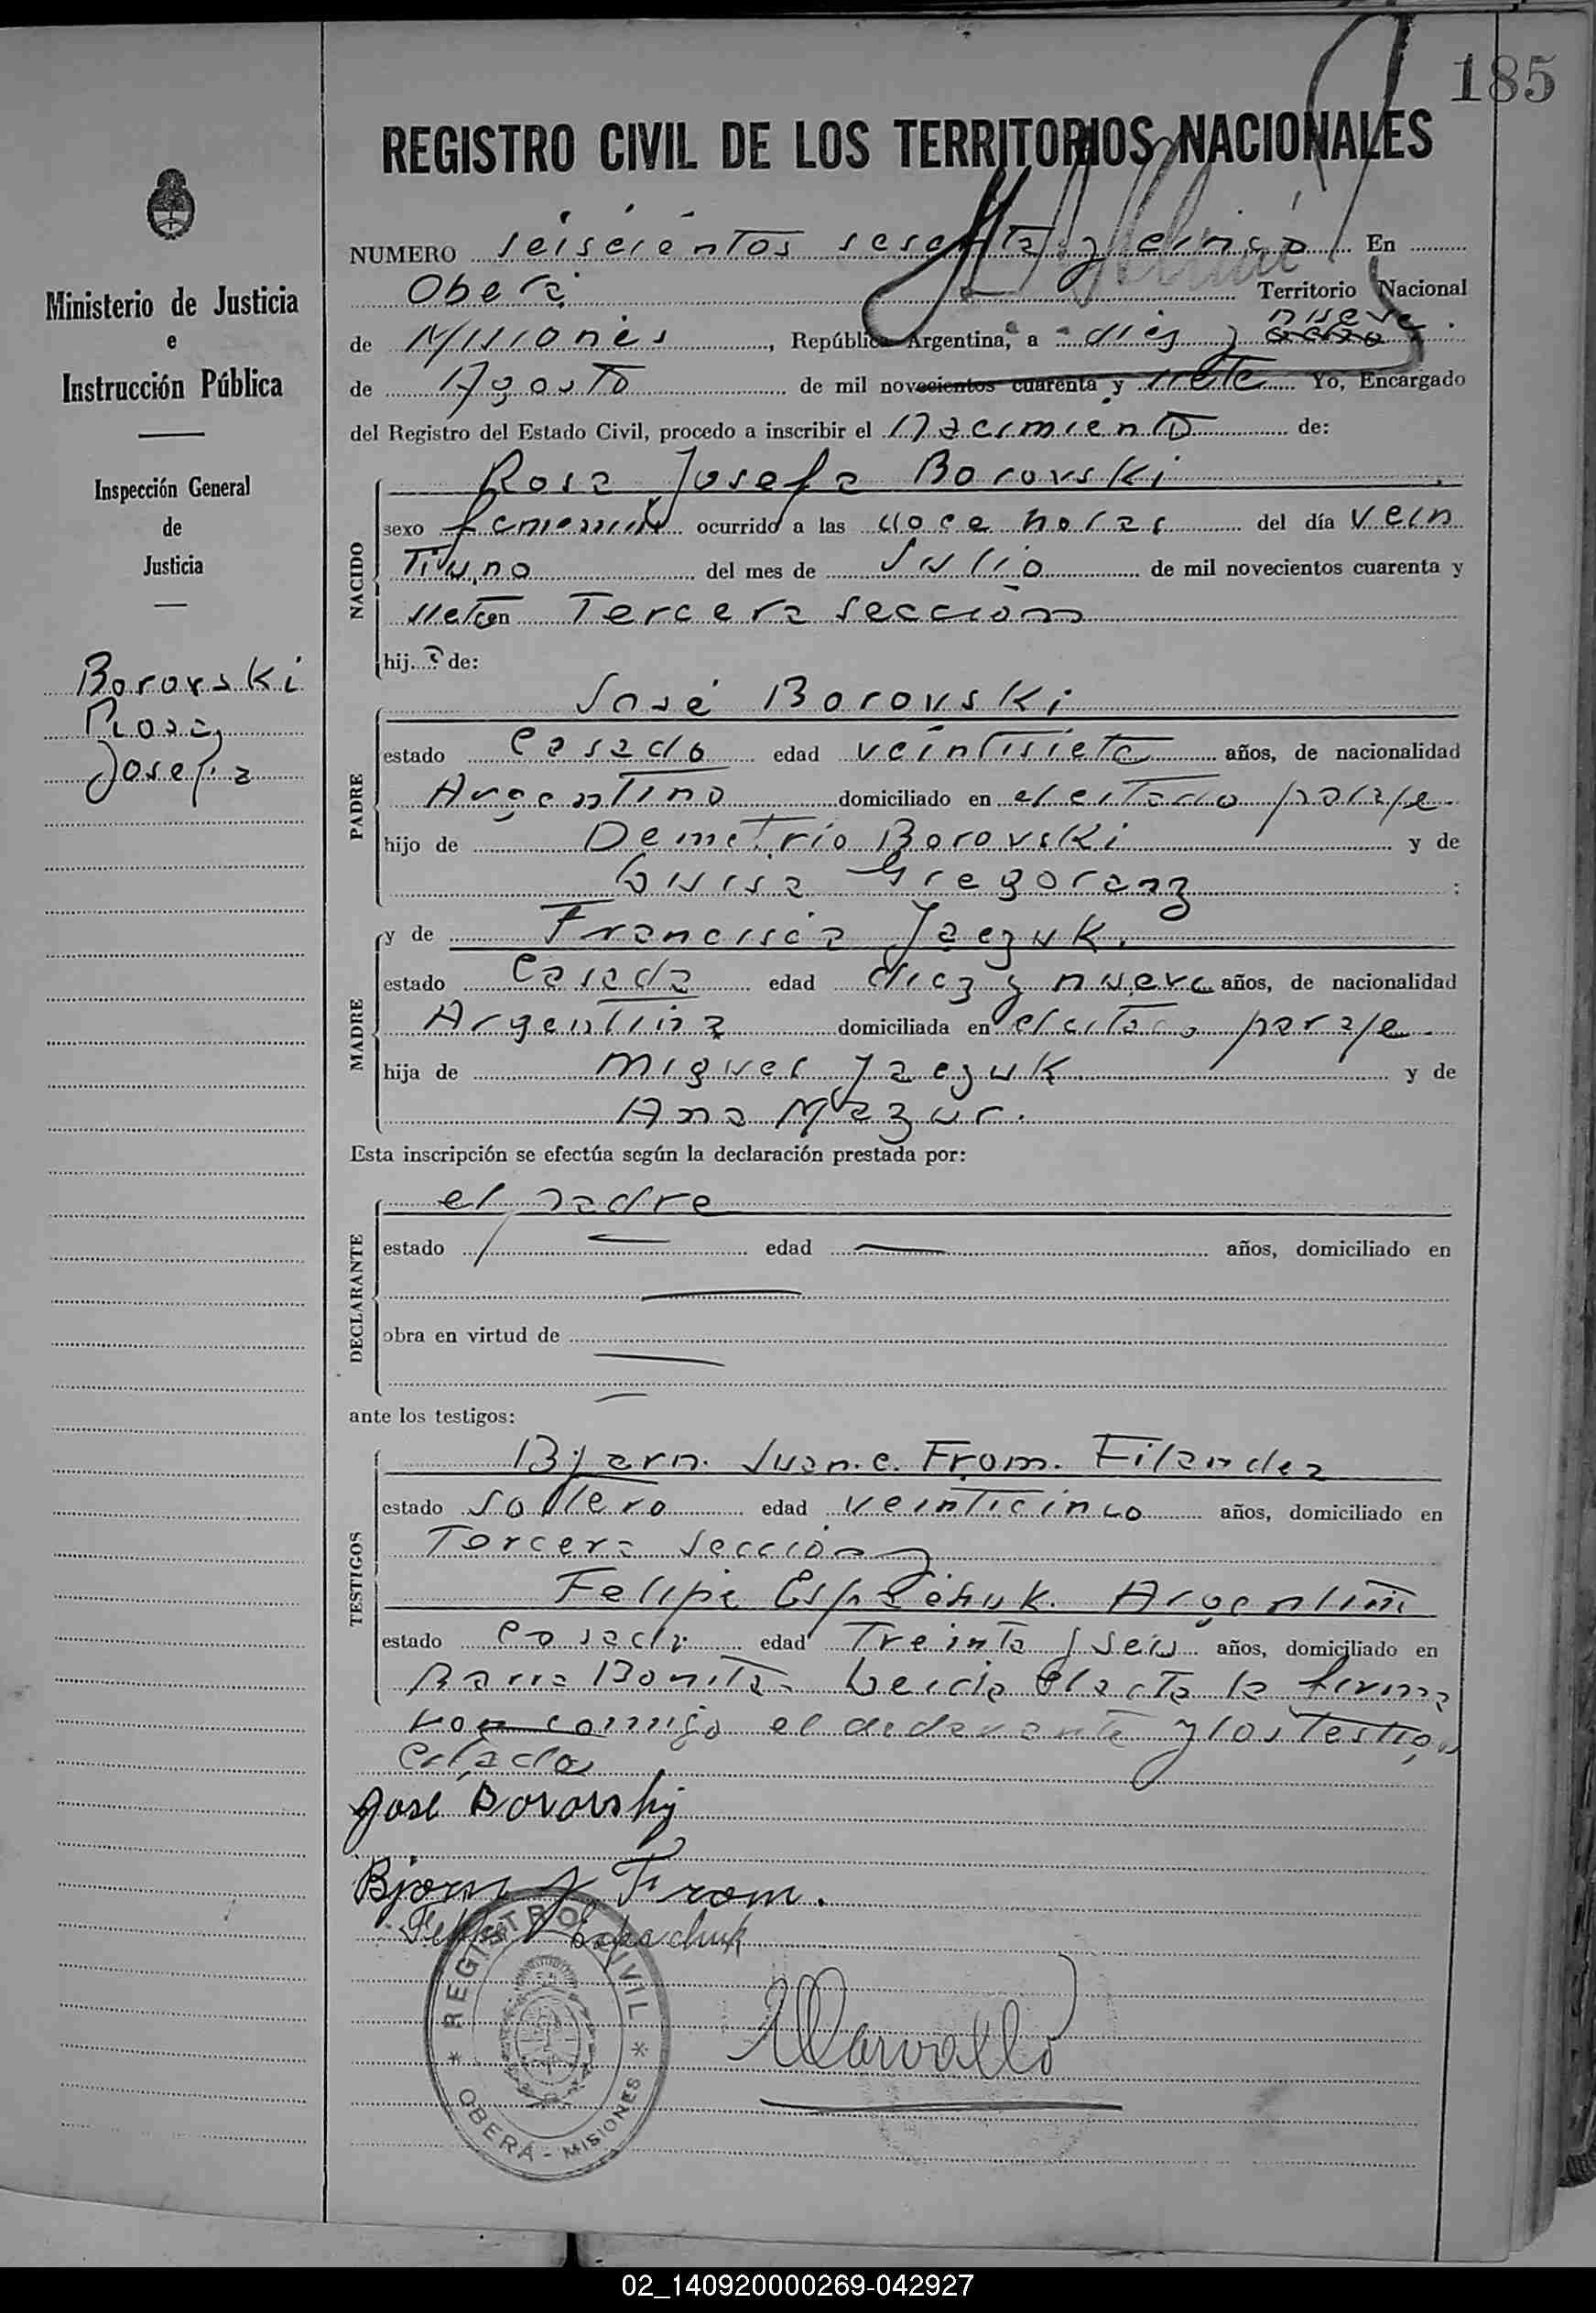 185
REGISTRO CIVIL DE LOS TERRITORIOS NACIONALES
Ministerio de Justicia
e
Instrucción Pública
Inspección General
de
Justicia
Borovski
Rosa
Josefa
NUMERO seiscientos sesenta y cinco En
Oberá Territorio Nacional
nueve
de Misiones, República Argentina, a diez y
de Agosto de mil novecientos cuarenta y siete Yo, Encargado
del Registro del Estado Civil, procedo a inscribir el Nacimiento de:
NACIDO
Rosa Josefa Borovski
sexo femenino ocurrido a las doce horas del día vein
tiuno del mes de Julio de mil novecientos cuarenta y
siete en Tercera sección
hij.a de:
PADRE
José Borovski
estado casado edad veintisiete años, de nacionalidad
Argentino domiciliado en el citado paraje.
hijo de Demetrio Borovski y de
Luisa Gregoranz
MADRE
y de Francisca Jaczuk.
estado casada edad diez y nueve años, de nacionalidad
Argentina domiciliada en el citado paraje.
hija de Miguel Jaczuk y de
Ana Mazur.
Esta inscripción se efectúa según la declaración prestada por:
DECLARANTE
el padre
estado edad años, domiciliado en
obra en virtud de
ante los testigos:
TESTIGOS
Bjarn. Juan. c. From. Filandea
estado soltero edad veinticinco años, domiciliado en
Tercera sección y
Felipe Argentino
estado casado edad Treinta y seis años, domiciliado en
Barra Bonita. Leida el acta la firma
ron conmigo el declarante y los testigos
citados
José Borovski
Bjorn J From.
Felipe
REGISTRO CIVIL
OBERÁ - MISIONES
02_140920000269-042927